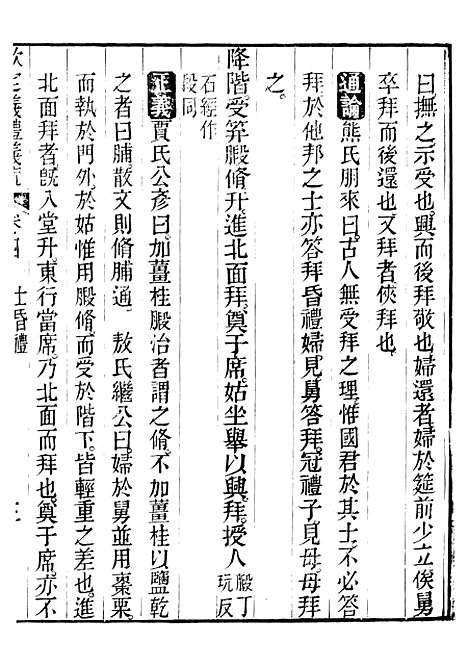 曰撫之示受也興而後拜敬也婦還者婦於筵前少立俟舅
卒拜而後還也又拜者俠拜也
通論熊氏朋來曰古人無受拜之理惟國君於其士不必答
拜於他邦之士亦答拜昏禮婦見舅答拜冠禮子見母母拜
之
降階受笲腶脩升進北面拜奠于席姑坐舉以興拜授人腶丁
玩反
石經作
段同
正義賈氏公彥曰加薑桂腶治者謂之脩不加薑桂以鹽乾
之者曰脯散文則脩脯通 敖氏繼公曰婦於舅並用棗栗
而執於門外於姑惟用腶脩而受於階下皆輕重之差也進
北面拜者旣入堂升東行當席乃北面而拜也奠于席亦不
欽定義禮義疏 卷四 士昏禮